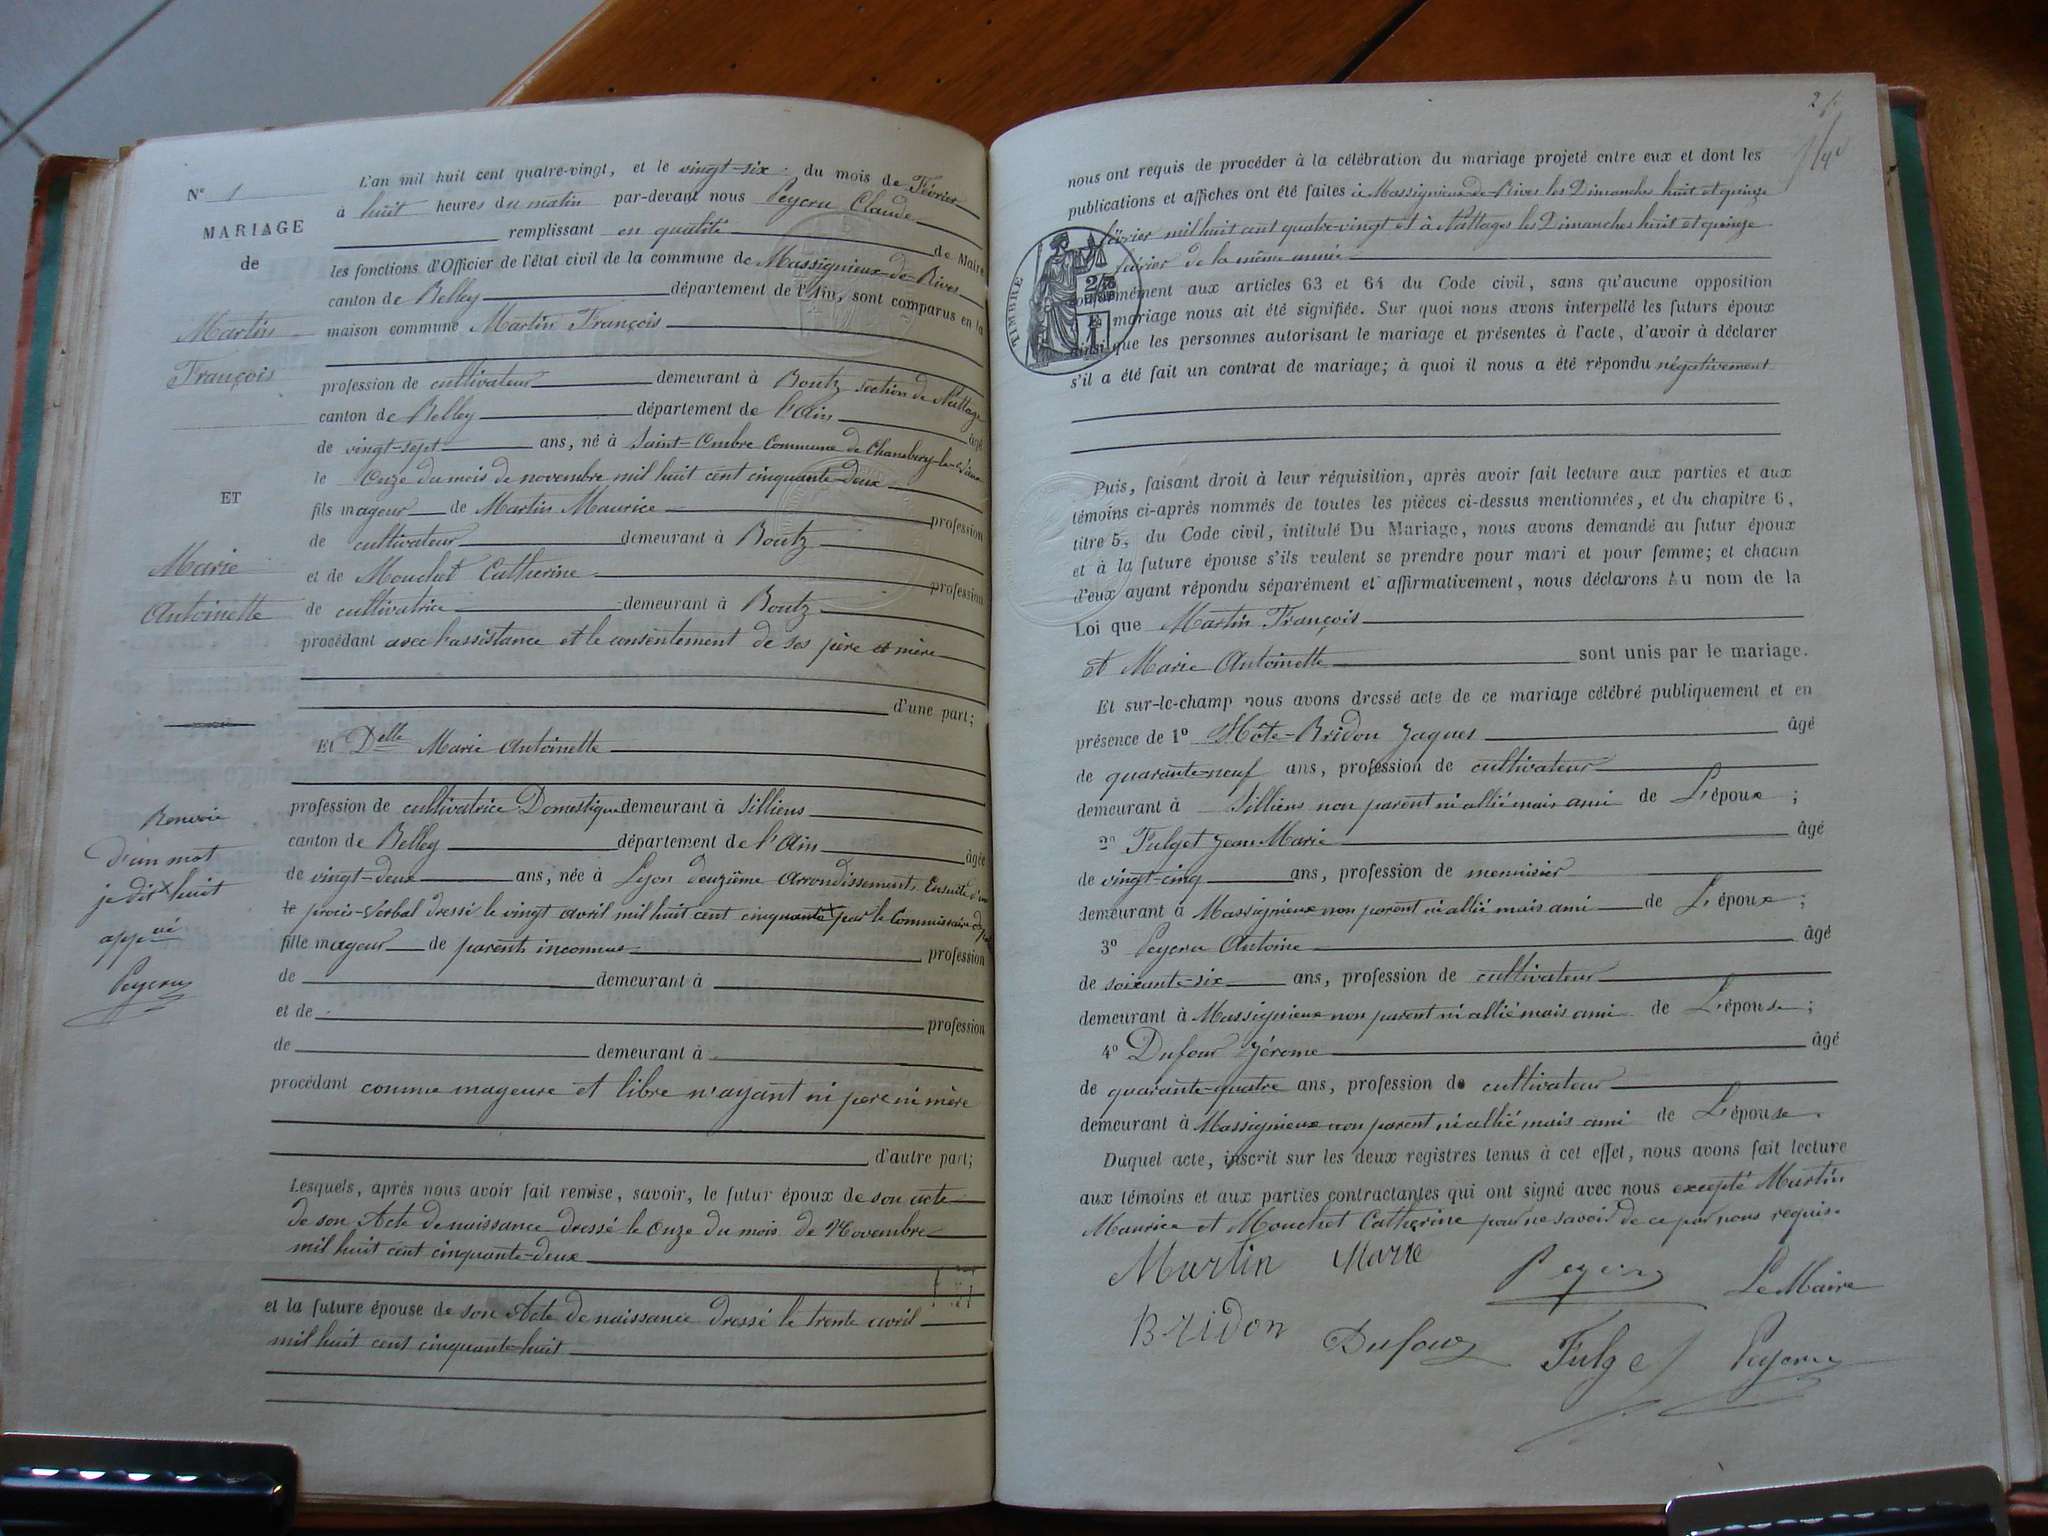 N° 1
MARIAGE
de
Martin
François
ET
Marie
Antoinette
Renvoie
d'un mot
je dit x huit
app.vé
Peycru
L'an mil huit cent quatre-vingt, et le vingt-six du mois de Février
à huit heures du matin par-devant nous Peycru Claude
remplissant en qualité de Maire
les fonctions d'Officier de l'état civil de la commune de Massignieux-de-Rives
canton de Belley département de l'Ain, sont comparus en la
maison commune Martin François
profession de cultivateur demeurant à Boutz section de Nattages
canton de Belley département de l'Ain âgé
de vingt-sept ans, né à Saint-Ombre Commune de Chambéry-le-Vieux
le Onze du mois de novembre mil huit cent cinquante-deux
fils mageur de Martin Maurice profession
de cultivateur demeurant à Boutz
et de Mouchet Catherine profession
de cultivatrice demeurant à Boutz
procédant avec l'assistance et le consentement de ses père et mère
d'une part;
Et Delle Marie Antoinette
profession de cultivatrice Domestique demeurant à Silliens
canton de Belley département de l'Ain âgée
de vingt-deux ans, née à Lyon deuzième Arrondissement Ensuite d'un
procès-Verbal dressé le vingt avril mil huit cent cinquante x par le Commissaire de
fille mageur de parents inconnus profession
de demeurant à
et de profession
de demeurant à
procédant comme mageure et libre n'ayant ni père ni mère
d'autre part;
Lesquels, après nous avoir fait remise, savoir, le futur époux de son acte
de son Acte de naissance dressé le Onze du mois de Novembre
mil huit cent cinquante-deux
et la future épouse de son Acte de naissance dressé le trente avril
mil huit cent cinquante-huit
2
nous ont requis de procéder à la célébration du mariage projeté entre eux et dont les
publications et affiches ont été faites à Massignieux-de-Rives les Dimanches huit et quinze
février mil huit cent quatre-vingt et à Nattages les Dimanches huit et quinze
février de la même année
TIMBRE
conformément aux articles 63 et 64 du Code civil, sans qu'aucune opposition
mariage nous ait été signifiée. Sur quoi nous avons interpellé les futurs époux
ainsi que les personnes autorisant le mariage et présentes à l'acte, d'avoir à déclarer
s'il a été fait un contrat de mariage; à quoi il nous a été répondu négativement
Puis, faisant droit à leur réquisition, après avoir fait lecture aux parties et aux
témoins ci-après nommés de toutes les pièces ci-dessus mentionnées, et du chapitre 6,
titre 5, du Code civil, intitulé Du Mariage, nous avons demandé au futur époux
et à la future épouse s'ils veulent se prendre pour mari et pour femme; et chacun
d'eux ayant répondu séparément et affirmativement, nous déclarons Au nom de la
Loi que Martin François
et Marie Antoinette sont unis par le mariage.
Et sur-le-champ nous avons dressé acte de ce mariage célébré publiquement et en
présence de 1° Hôte-Bridon Jaques âgé
de quarante-neuf ans, profession de cultivateur
demeurant à Silliens non parent ni allié mais ami de L'époux ;
2° Fulget Jean Marie âgé
de vingt-cinq ans, profession de menuisier
demeurant à Massignieux non parent ni allié mais ami de L'époux ;
3° Peycru Antoine âgé
de soixante-six ans, profession de cultivateur
demeurant à Massignieux non parent ni allié mais ami de L'épouse ;
4° Dufour Jérome âgé
de quarante-quatre ans, profession de cultivateur
demeurant à Massignieux non parent ni allié mais ami de L'épouse.
Duquel acte, inscrit sur les deux registres tenus à cet effet, nous avons fait lecture
aux témoins et aux parties contractantes qui ont signé avec nous excepté Martin
Maurice et Mouchet Catherine pour ne savoir de ce par nous requis.
Martin Marie Peycru Le Maire
Bridon Dufour Fulget Peycru